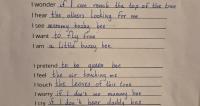 I wonder if I can reach the top of the tree
I hear the others looking for me
I see mummy bee
I want to fly free
I am a little busy bee
I pretend to be queen bee
I feel the air touching me
I touch the leaves of this tree
I worry if I don't see mummy bee
I cry if I don't hear daddy bee